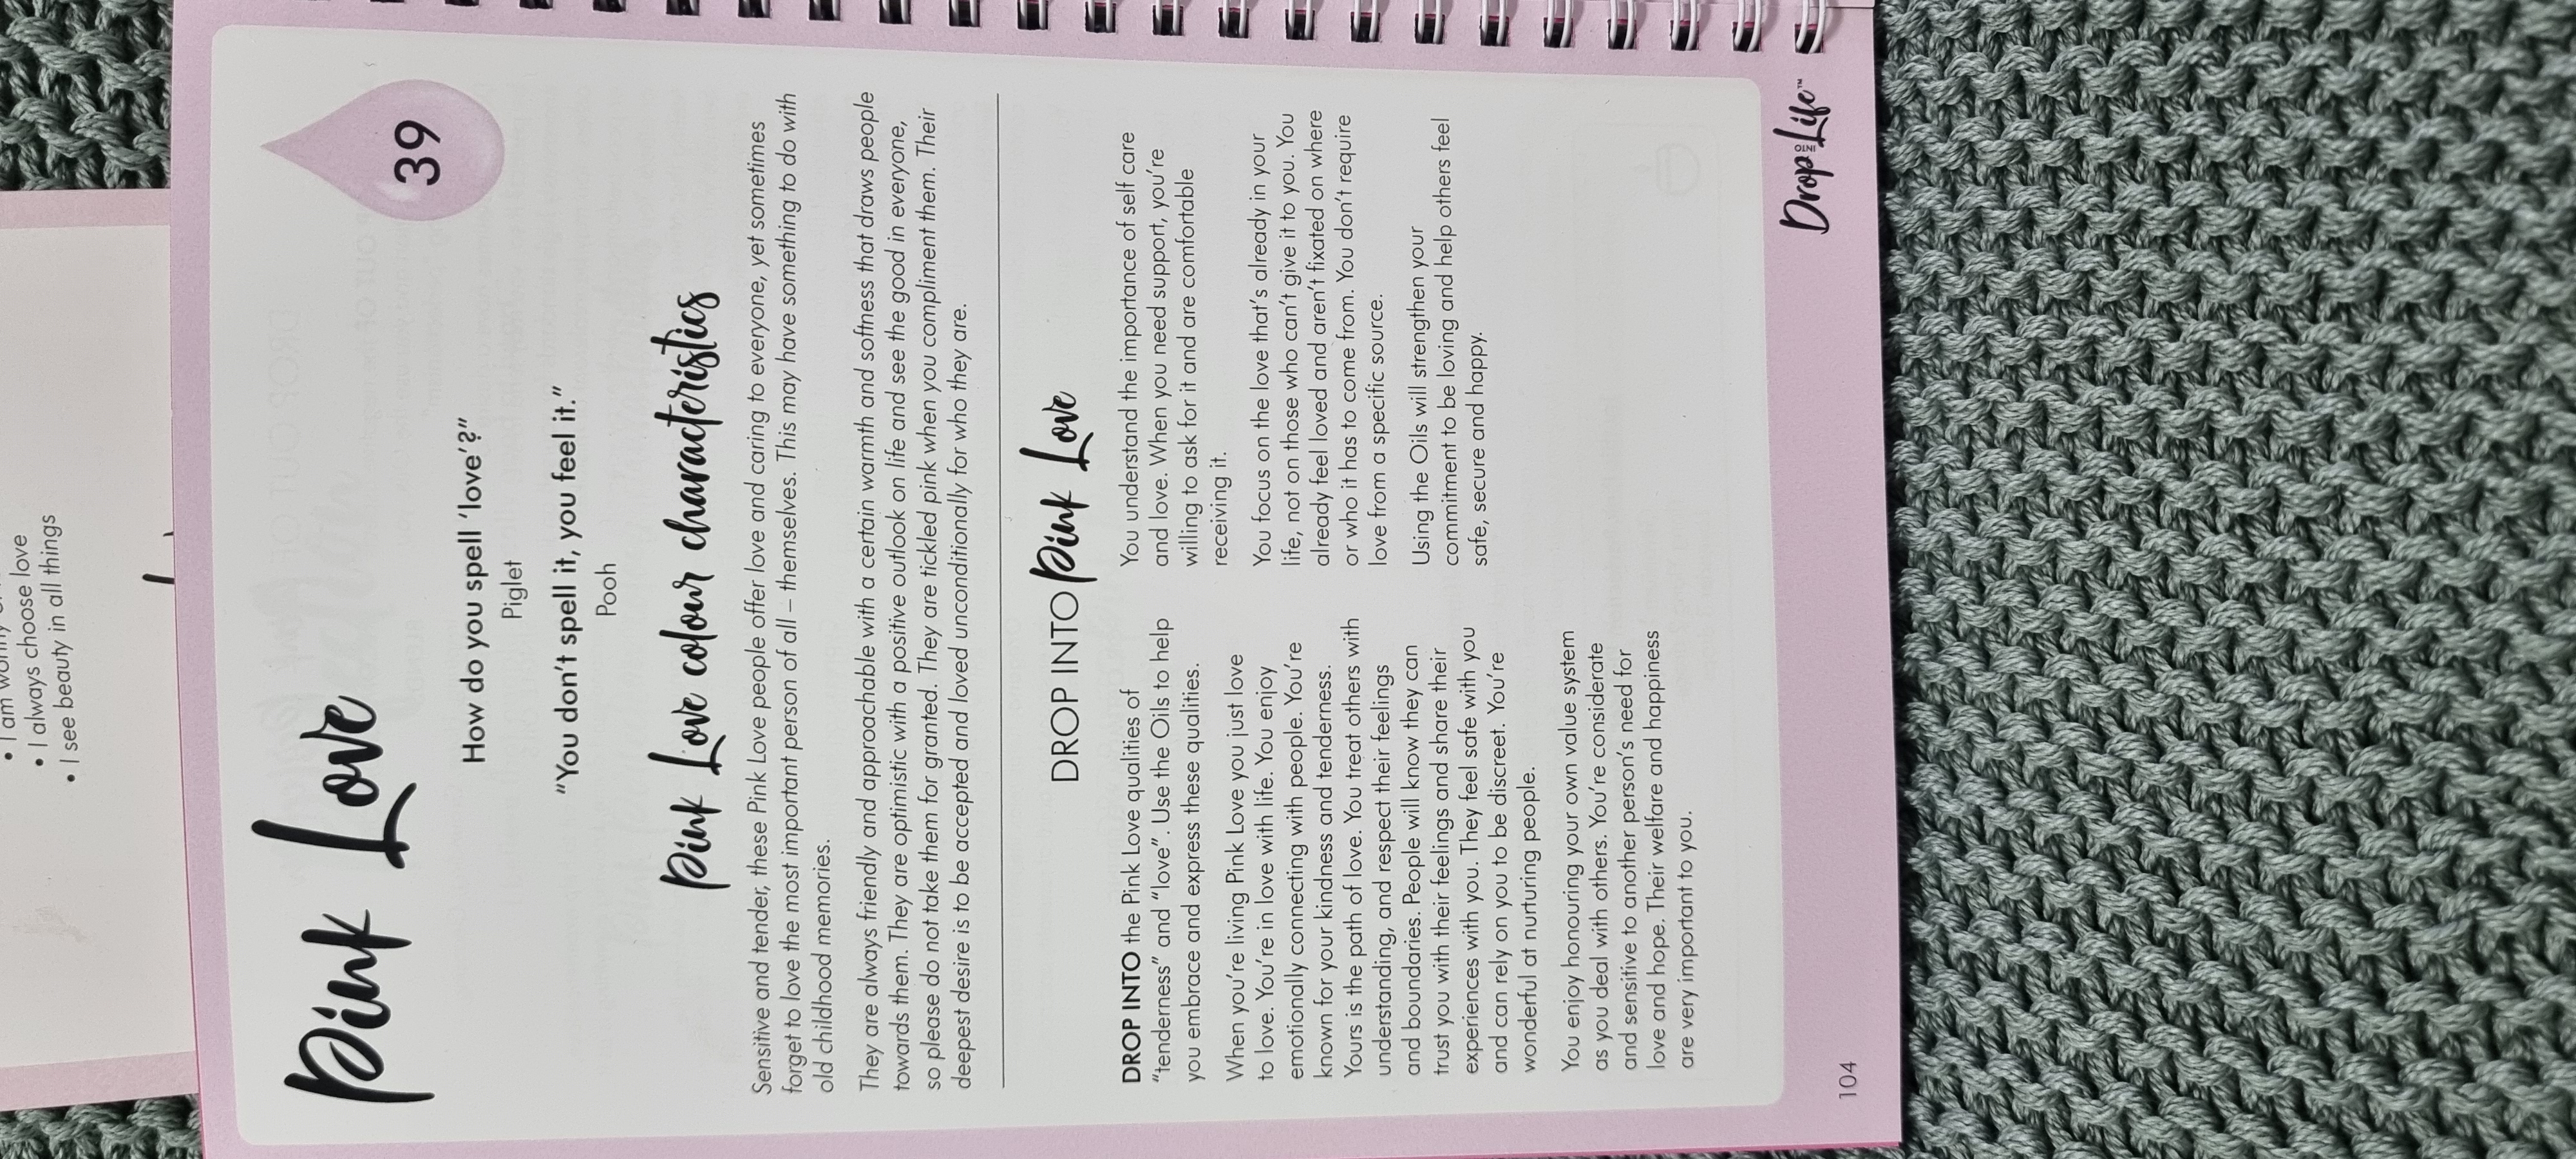 • I always choose love
• I see beauty in all things
Pink Love
39
How do you spell ‘love’?”
Piglet
“You don’t spell it, you feel it.”
Pooh
Pink Love colour characteristics
Sensitive and tender, these Pink Love people offer love and caring to everyone, yet sometimes
forget to love the most important person of all – themselves. This may have something to do with
old childhood memories.
They are always friendly and approachable with a certain warmth and softness that draws people
towards them. They are optimistic with a positive outlook on life and see the good in everyone,
so please do not take them for granted. They are tickled pink when you compliment them. Their
deepest desire is to be accepted and loved unconditionally for who they are.
DROP INTO Pink Love
DROP INTO the Pink Love qualities of
“tenderness” and “love”. Use the Oils to help
you embrace and express these qualities.
When you’re living Pink Love you just love
to love. You’re in love with life. You enjoy
emotionally connecting with people. You’re
known for your kindness and tenderness.
Yours is the path of love. You treat others with
understanding, and respect their feelings
and boundaries. People will know they can
trust you with their feelings and share their
experiences with you. They feel safe with you
and can rely on you to be discreet. You’re
wonderful at nurturing people.
You enjoy honouring your own value system
as you deal with others. You’re considerate
and sensitive to another person’s need for
love and hope. Their welfare and happiness
are very important to you.
You understand the importance of self care
and love. When you need support, you’re
willing to ask for it and are comfortable
receiving it.
You focus on the love that’s already in your
life, not on those who can’t give it to you. You
already feel loved and aren’t fixated on where
or who it has to come from. You don’t require
love from a specific source.
Using the Oils will strengthen your
commitment to be loving and help others feel
safe, secure and happy.
104
Drop INTO Life™